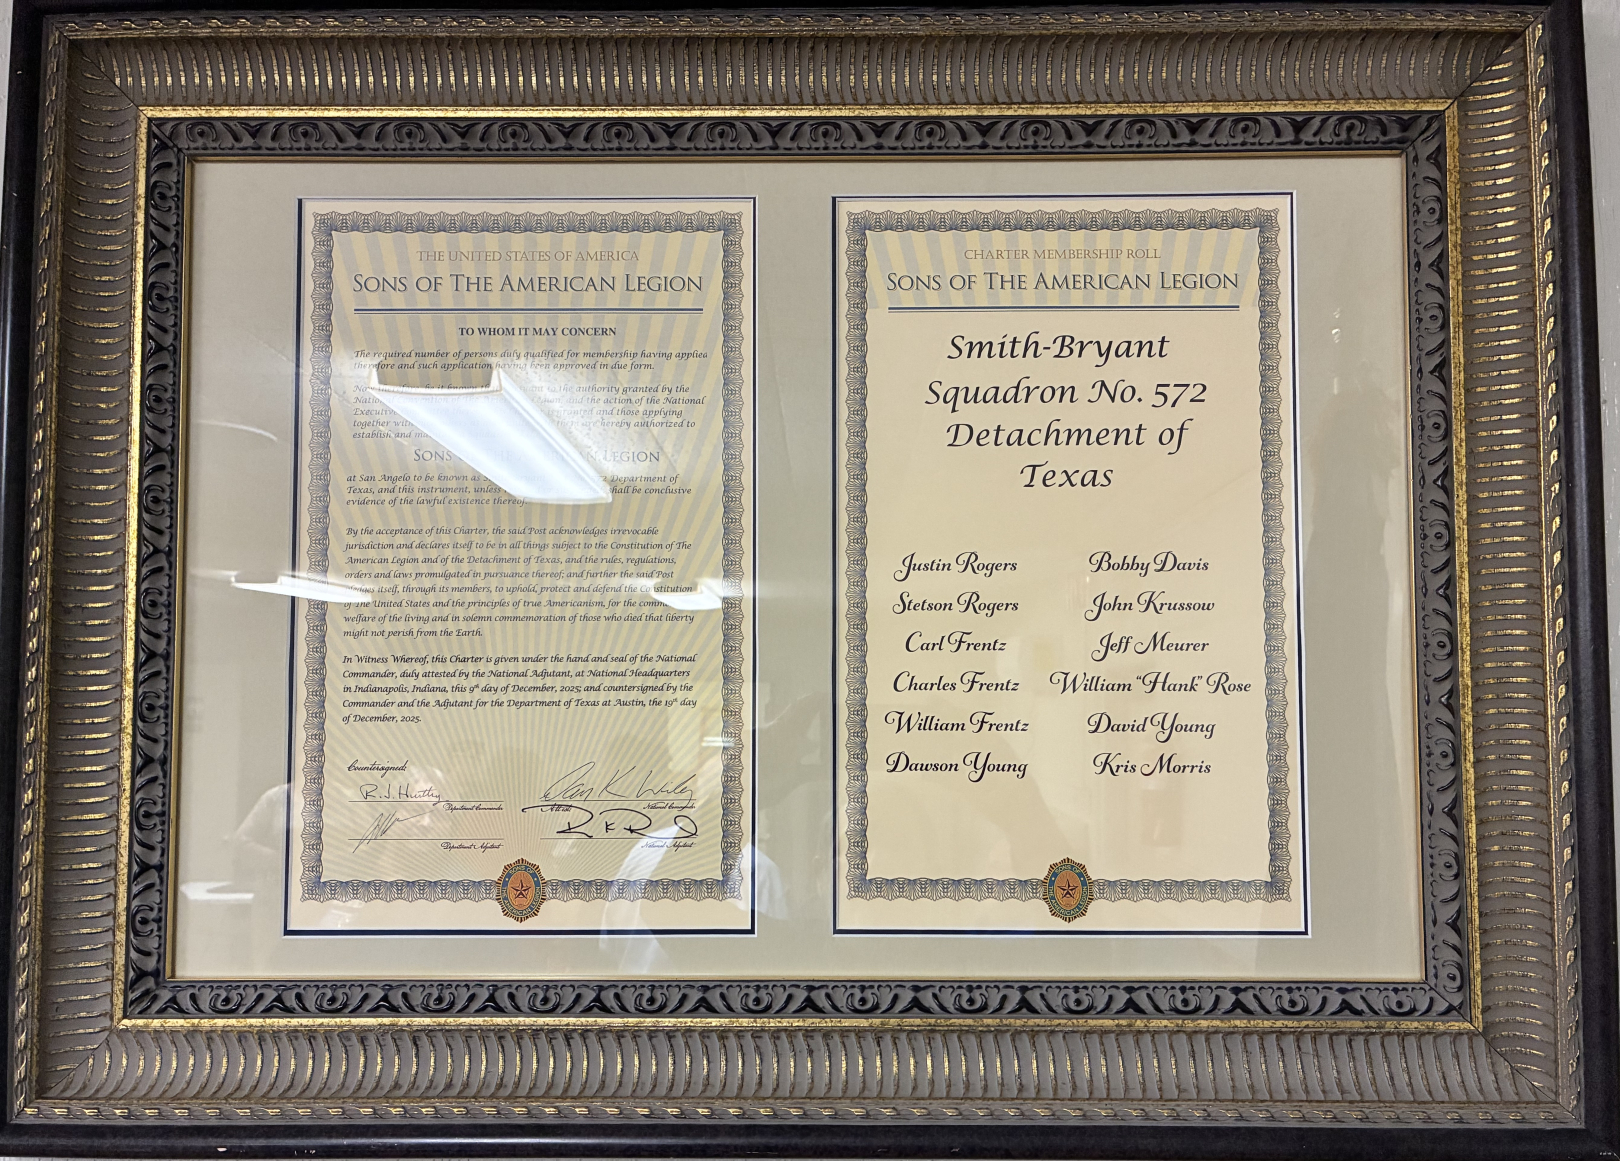 THE UNITED STATES OF AMERICA
SONS OF THE AMERICAN LEGION
TO WHOM IT MAY CONCERN
The required number of persons duly qualified for membership having applied
therefore and such application having been approved in due form.
it known to the authority granted by the
and the action of the National
Executive granted and those applying
together with are hereby authorized to
establish and
SONS LEGION
at San Angelo to be known as Department of
Texas, and this instrument, unless shall be conclusive
evidence of the lawful existence thereof.
By the acceptance of this Charter, the said Post acknowledges irrevocable
jurisdiction and declares itself to be in all things subject to the Constitution of The
American Legion and of the Detachment of Texas, and the rules, regulations,
orders and laws promulgated in pursuance thereof; and further the said Post
pledges itself, through its members, to uphold, protect and defend the Constitution
of The United States and the principles of true Americanism, for the common
welfare of the living and in solemn commemoration of those who died that liberty
might not perish from the Earth.
In Witness Whereof, this Charter is given under the hand and seal of the National
Commander, duly attested by the National Adjutant, at National Headquarters
in Indianapolis, Indiana, this 9th day of December, 2025; and countersigned by the
Commander and the Adjutant for the Department of Texas at Austin, the 19th day
of December, 2025.
Countersigned:
Department Commander
Attest:
National Commander
Department Adjutant
National Adjutant
SONS OF
THE AMERICAN LEGION
CHARTER MEMBERSHIP ROLL
SONS OF THE AMERICAN LEGION
Smith-Bryant
Squadron No. 572
Detachment of
Texas
Justin Rogers
Stetson Rogers
Carl Frentz
Charles Frentz
William Frentz
Dawson Young
Bobby Davis
John Krussow
Jeff Meurer
William "Hank" Rose
David Young
Kris Morris
SONS OF
THE AMERICAN LEGION